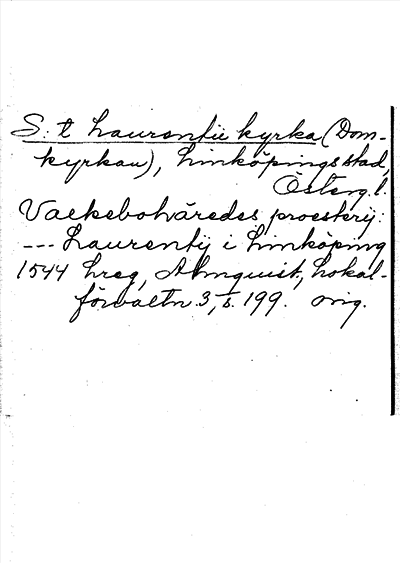 S:t Laurentii kyrka (Dom-
kyrkan), Linköpings stad,
Österg. l.
Valkebohäredes proesterij:
--- Laurentij i Linköping
1544 hreg, Almquist, Lokal-
förvaltn. 3, s. 199. orig.